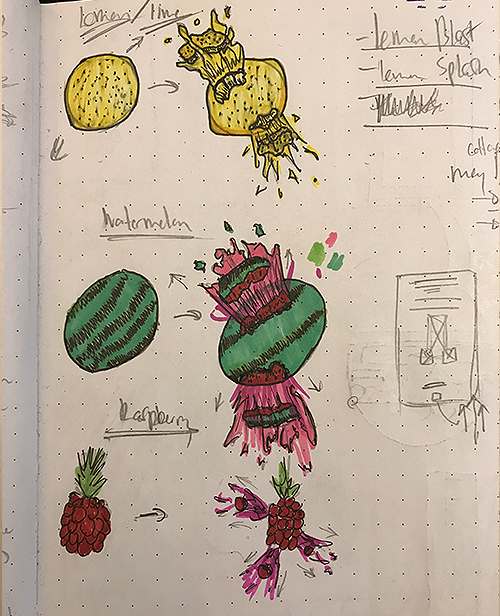 Lemon/Lime
- Lemon Blast
- Lemon Splash
may
Watermelon
Raspberry